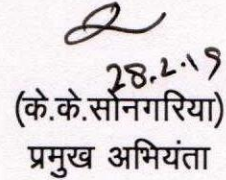 28.2.19
(के.के.सोनगरिया)
प्रमुख अभियंता